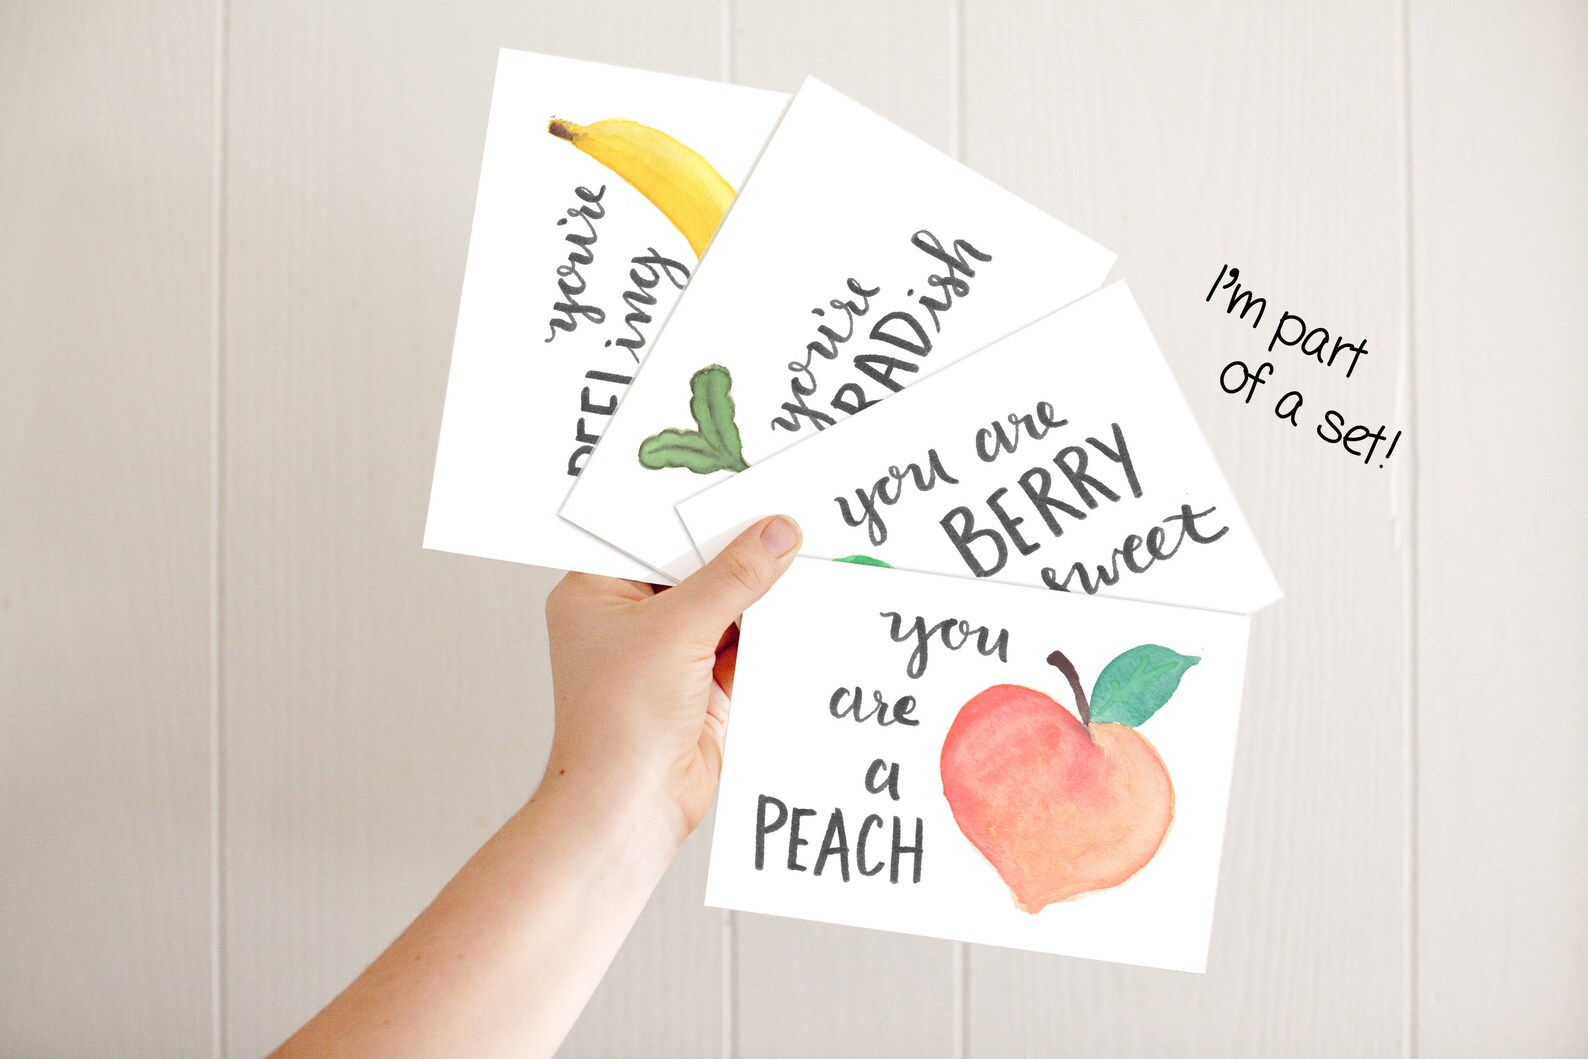 you're
PEELing
you're
RADish
you are
BERRY
sweet
you
are
a
PEACH
I'm part
of a set!